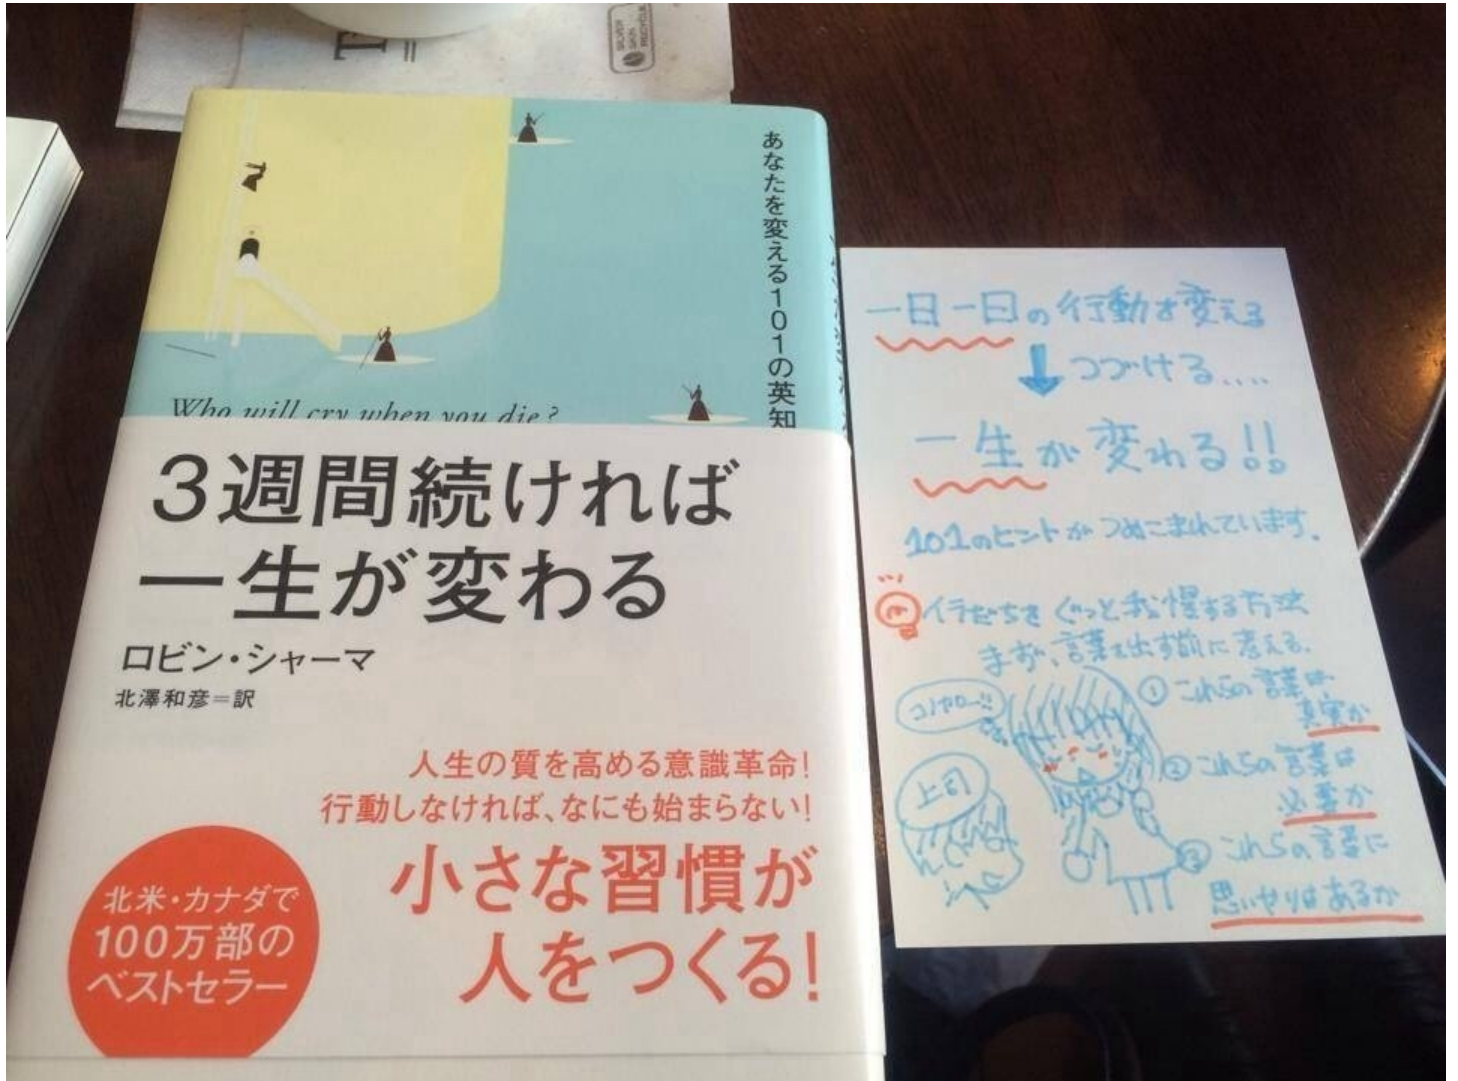 SILVER
SKIN
あなたを変える101の英知
Who will cry when you die?
3週間続ければ
一生が変わる
ロビン・シャーマ
北澤和彦=訳
人生の質を高める意識革命!
行動しなければ、なにも始まらない!
小さな習慣が
人をつくる!
北米・カナダで
100万部の
ベストセラー
一日一日の行動を変える
つづける....
一生が変わる!!
101のヒントがつめこまれています.
イライラをぐっと我慢する方法
まず、言葉を出す前に考える.
コノヤロー!!
上司
① これらの言葉は
真実か
② これらの言葉は
必要か
③ これらの言葉に
思いやりはあるか